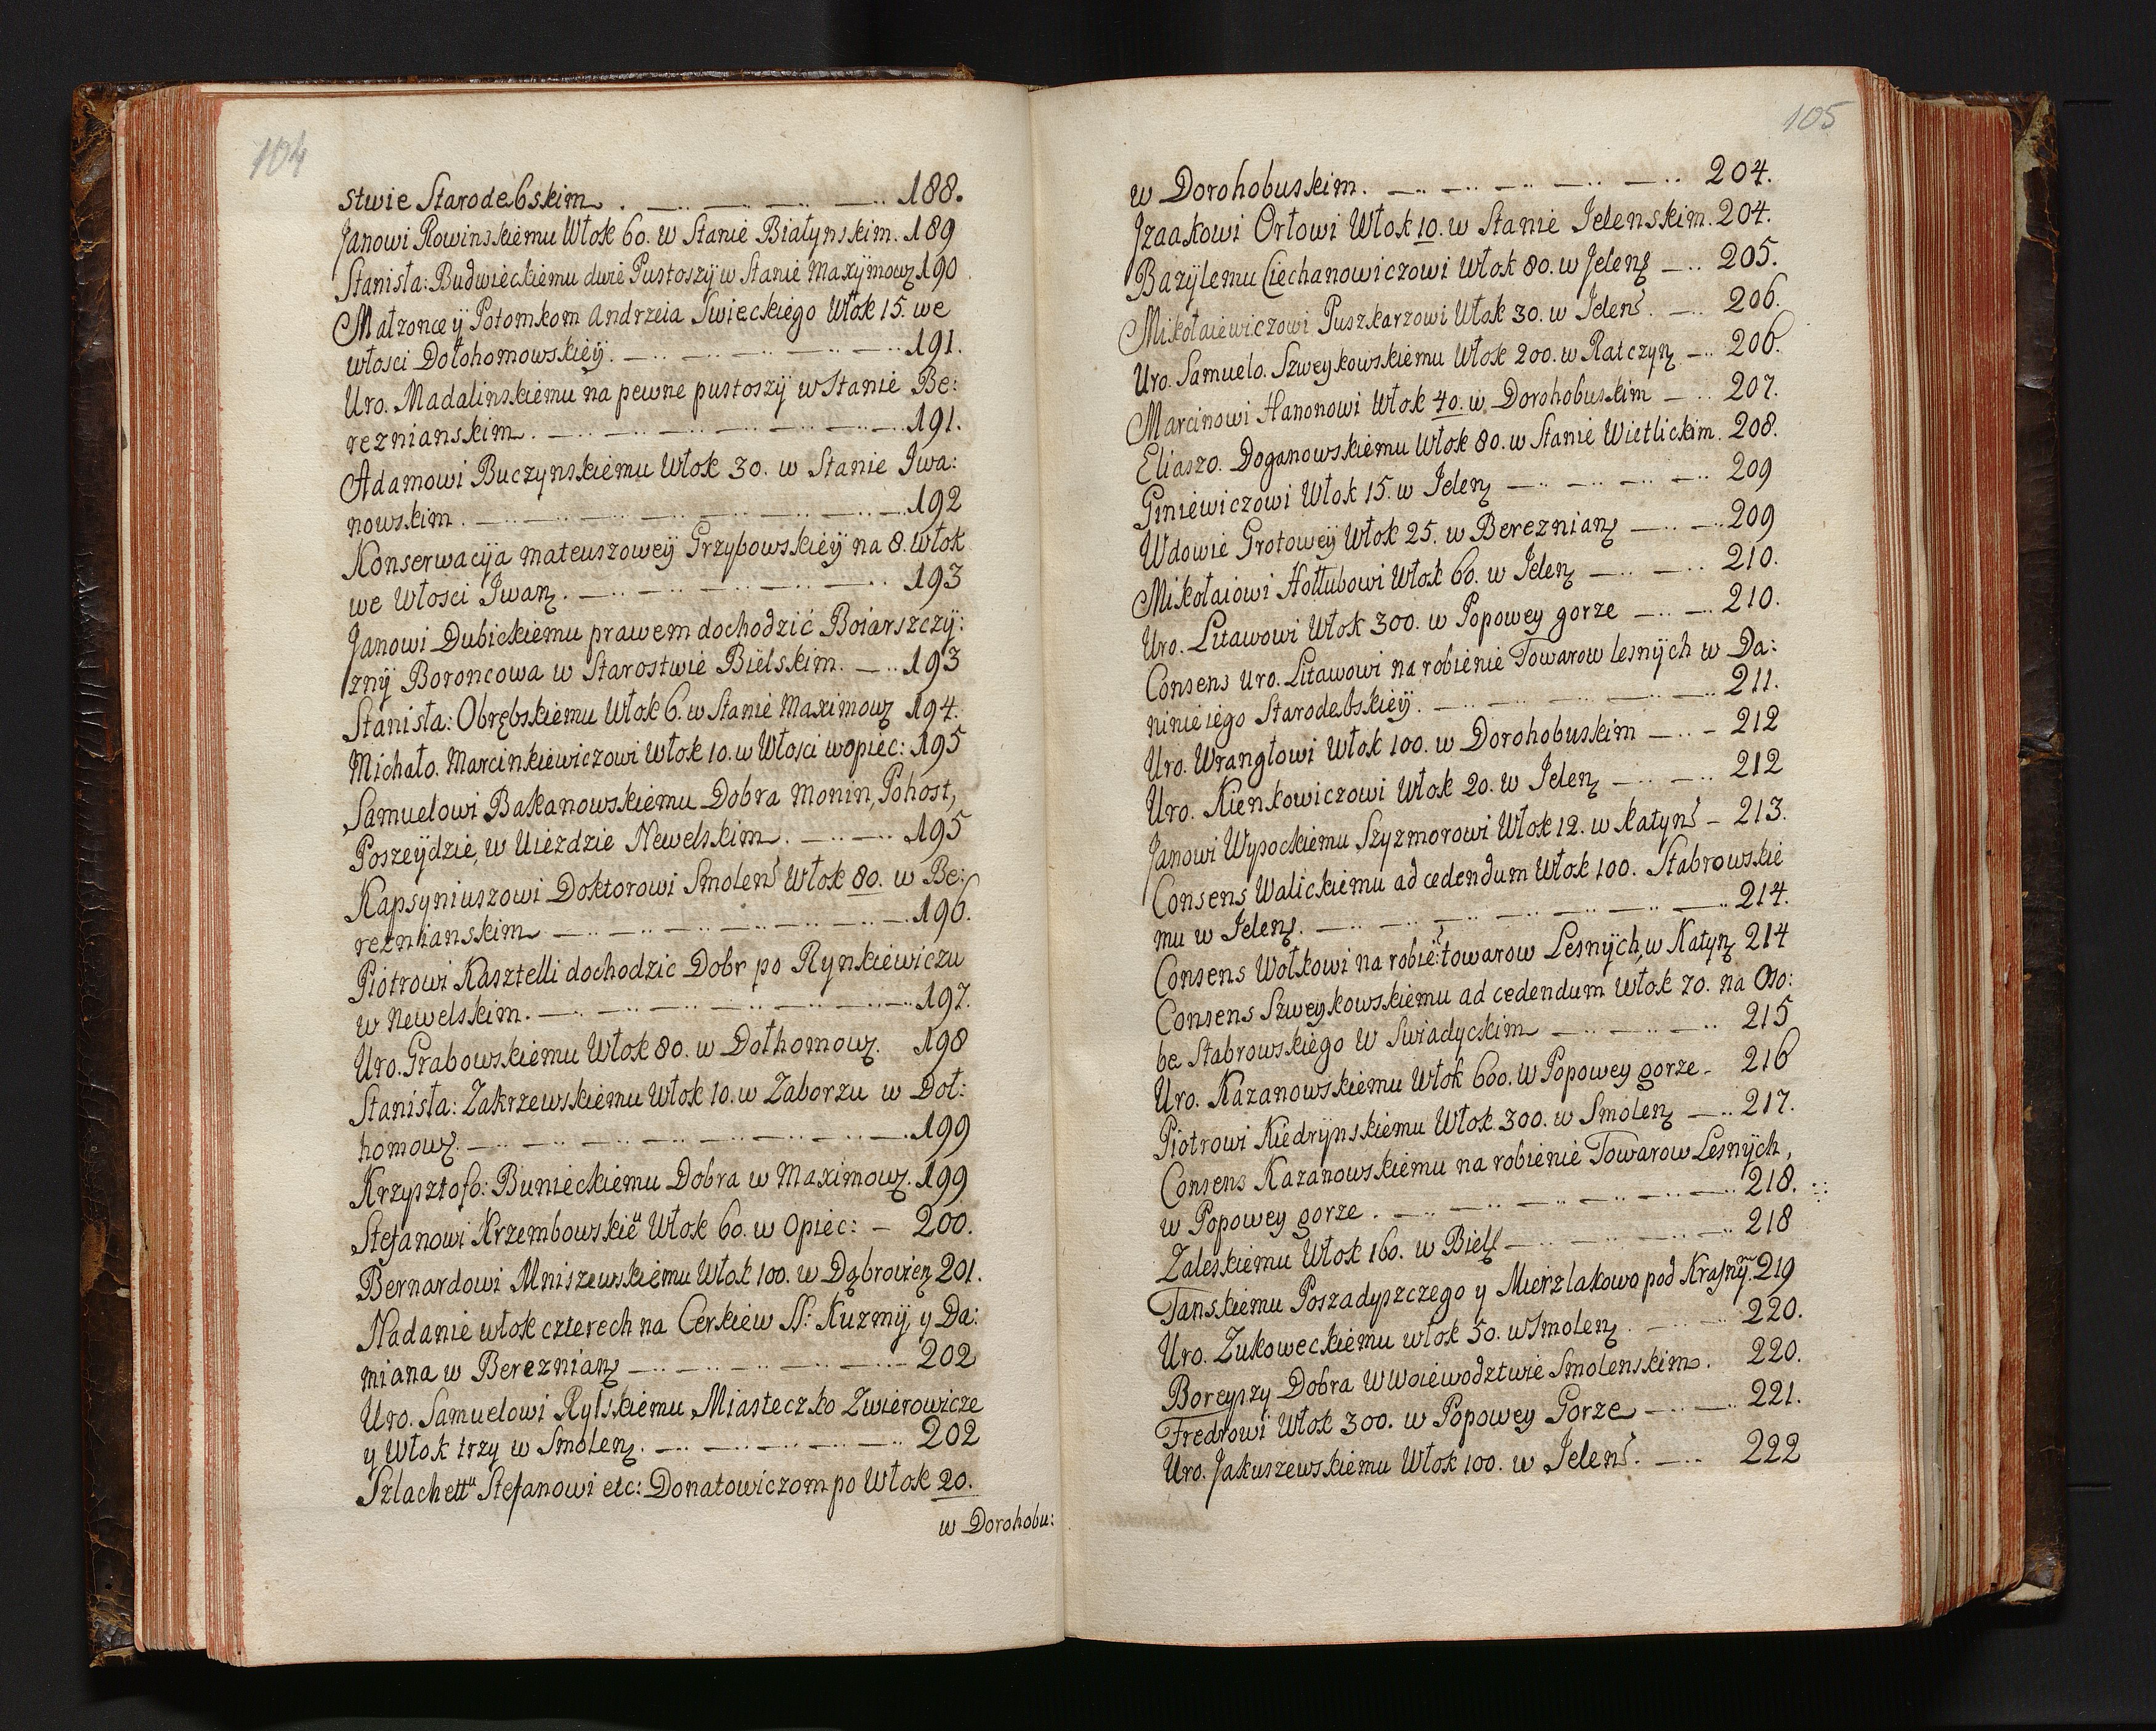 104
stwie Starodebskim . — .. — .. — .. 188.
Janowi Rowinskiemu Włok 60. w Stanie Białynskim. 189
Stanisła: Budwieckiemu dwie Pustoszy w Stanie Maxymowz 190
Małzonce ÿ Potomkom Andrzeia Swieckiego Włok 15. we
włosci Dołohomowskieÿ . — .. — .. — .. 191.
Uro. Madalinskiemu na pewne pustoszÿ w Stanie Be:
reznianskim . — .. — .. — .. 191.
Adamowi Buczynskiemu Włok 30. w Stanie Iwa:
nowskim . — .. — .. — .. 192
Konserwacÿa mateuszoweÿ Grzybowskieÿ na 8. włok
we Włosci Iwanz . — .. — .. — .. 193
Janowi Dubickiemu prawem dochodzić Boiarszczÿ:
znÿ Boroncowa w Starostwie Bielskim. — .. 193
Stanisła: Obrębskiemu Włok 6. w Stanie Maximowz 194.
Michało. Marcinkiewiczowi Włok 10. w Włosci wopiec: 195
Samuelowi Bakanowskiemu Dobra Monin, Pohost,
Poszeÿdzie, w Uiezdzie Newelskim . — .. — .. 195
Kapsyniuszowi Doktorowi Smolens Włok 80. w Be:
reznianskim — .. — .. — .. 196.
Piotrowi Kasztelli dochodzic Dobr po Rynkiewiczu
w Newelskim . — .. — .. — .. 197.
Uro. Grabowskiemu Włok 80. w Dołhomowz. 198
Stanisła: Zakrzewskiemu Włok 10. w Zaborzu w Doł:
homowz . — .. — .. — .. 199
Krzysztofo: Bunieckiemu Dobra w Maximowz. 199
Stefanowi Krzembowskieu Włok 60. w Opiec: — 200.
Bernardowi Mniszewskiemu Włok 100. w Dąbrowienz 201.
Nadanie włok czterech na Cerkiew SS: Kuzmÿ, y Da:
miana w Bereznianz — .. — .. — .. 202
Uro. Samuelowi Rylskiemu Miasteczko Zwierowicze
y Włok trzy w Smolenz . — .. — .. — .. 202
Szlachettu Stefanowi etc: Donatowiczom po Włok 20.
w Dorohobu:
105
w Dorohobuskim . — .. — .. — .. 204.
Jzaakowi Orłowi Włok 10. w Stanie Jelenskim. 204.
Bazÿlemu Ciechanowiczowi Włok 80. w Jelenz — .. 205.
Mikołaiewiczowi Puszkarzowi Włok 30. w Jelens . — .. 206.
Uro. Samuelo. Szweykowskiemu Włok 200. w Ratczyn — .. 206.
Marcinowi Hanonowi Włok 40. w Dorohobuskim — .. 207.
Eliaszo. Doganowskiemu Włok 80. w Stanie Wietlickim. 208.
Giniewiczowi Włok 15. w Jelenz — .. — .. — .. 209
Wdowie Grotoweÿ Włok 25. w Bereznianz — .. — .. 209
Mikołaiowi Hołłubowi Włok 60. w Jelenz — .. — .. 210.
Uro. Litawowi Włok 300. w Popowey gorze — .. — .. 210.
Consens Uro. Litawowi na robienie Towarow lesnÿch w Da:
ninie iego Starodebskieÿ . — .. — .. — .. 211.
Uro. Wrangłowi Włok 100. w Dorohobuskim — .. — 212
Uro. Kienkowiczowi Włok 20. w Jelenz — .. — .. 212
Janowi Wypockiemu Szyzmorowi Włok 12. w Katyns — 213.
Consens Walickiemu ad cedendum Włok 100. Stabrowskie
mu w Jelenz . — .. — .. — .. 214.
Consens Wołkowi na robie: towarow Lesnÿch, w Katynz 214
Consens Szweykowskiemu ad cedendum Włok 70. na Oso:
be Stabrowskiego W Swiadyckim — .. — .. 215
Uro. Kazanowskiemu Włok 600. w Popowey gorze — 216
Piotrowi Kiedrzynskiemu Włok 300. w Smolenz — .. 217.
Consens Kazanowskiemu na robienie Towarow Lesnÿch,
w Popowey gorze . — .. — .. — .. 218.
Zaleskiemu Włok 160. w Biels — .. — .. 218
Tanskiemu Poszadyszczego y Mierzlakowo pod Krasnÿ 219
Uro. Zukoweckiemu włok 50. w Smolenz . — .. — .. 220.
Boreyszy Dobra W Woiewodztwie Smolenskim . 220.
Fredrowi Włok 300. w Popowey Gorze — .. — .. 221.
Uro. Jakuszewskiemu Włok 100. w Jelens . — .. 222